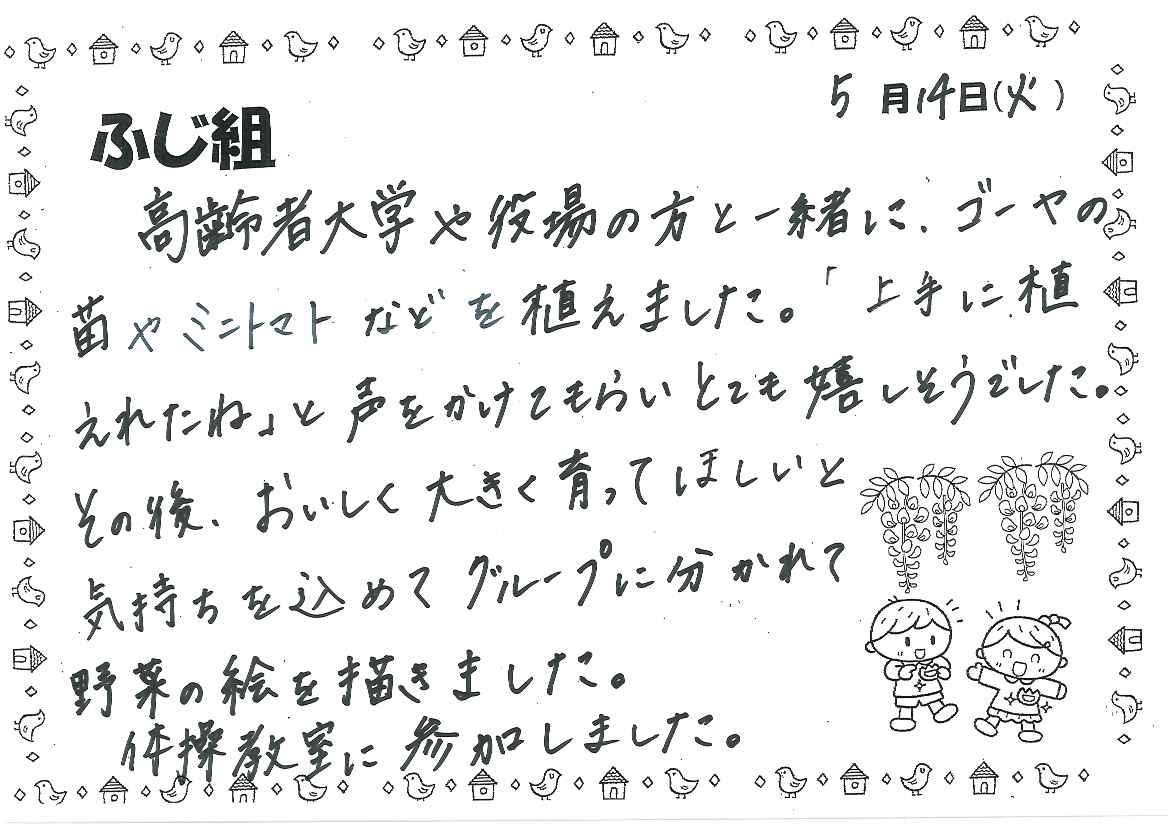 5月14日(火)
ふじ組
高齢者大学や役場の方と一緒に、ゴーヤの
苗やミニトマトなどを植えました。「上手に植
えれたね」と声をかけてもらいとても嬉しそうでした。
その後、おいしく大きく育ってほしいと
気持ちを込めてグループに分かれて
野菜の絵を描きました。
体操教室に参加しました。